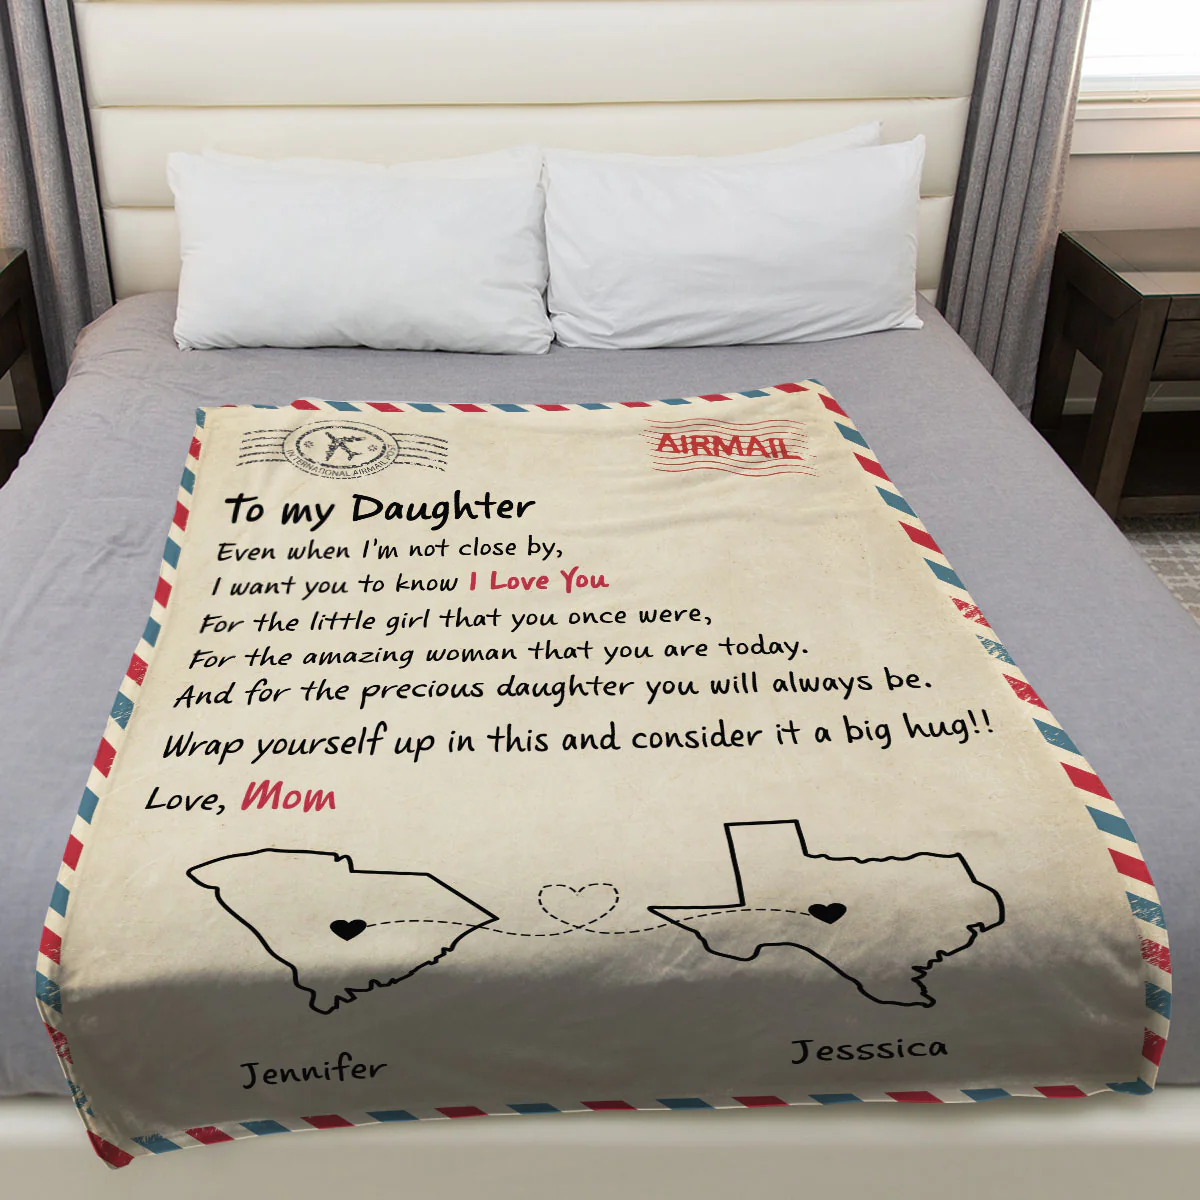 INTERNATIONAL AIRMAIL
AIRMAIL
To my Daughter
Even when I'm not close by,
I want you to know I Love You
For the little girl that you once were,
For the amazing woman that you are today.
And for the precious daughter you will always be.
Wrap yourself up in this and consider it a big hug!!
Love, Mom
Jennifer
Jesssica